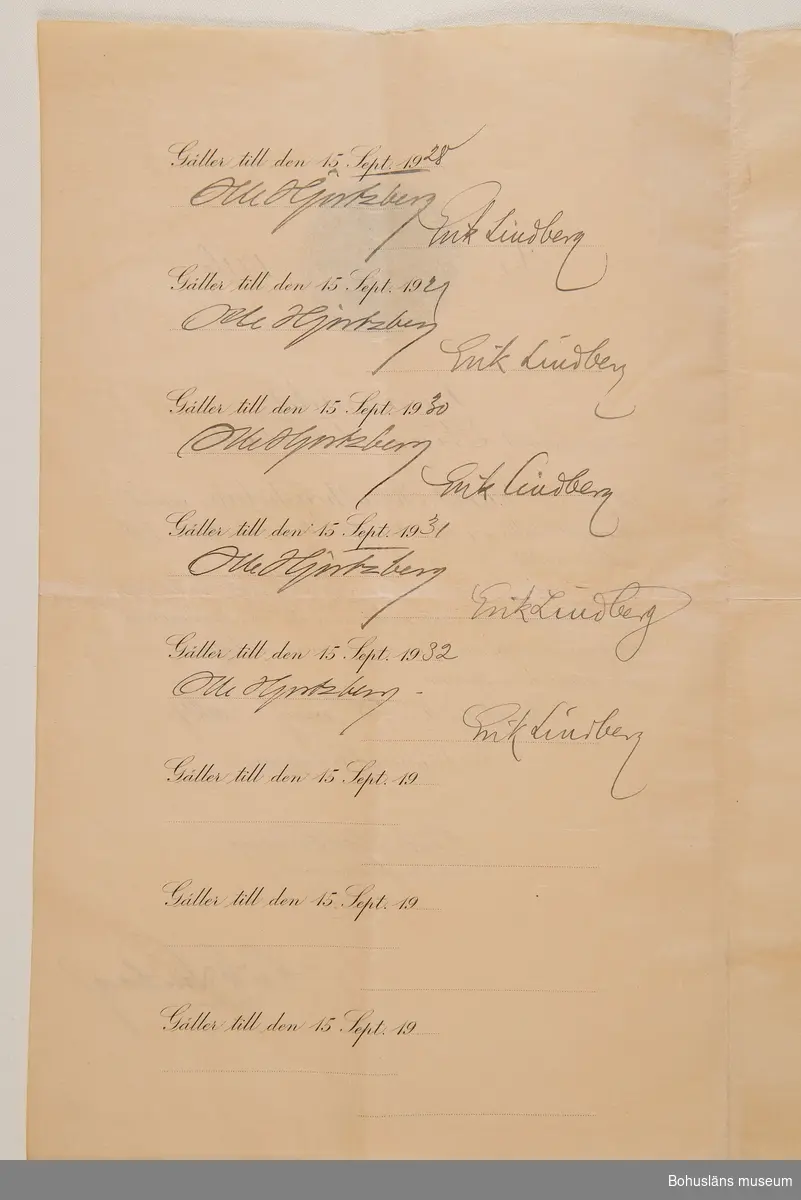 Gäller till den 15 Sept. 1928
Olle Hjortzberg
Erik Lindberg
Gäller till den 15 Sept. 1929
Olle Hjortzberg
Erik Lindberg
Gäller till den 15 Sept. 1930
Olle Hjortzberg
Erik Lindberg
Gäller till den 15 Sept. 1931
Olle Hjortzberg
Erik Lindberg
Gäller till den 15 Sept. 1932
Olle Hjortzberg -
Erik Lindberg
Gäller till den 15 Sept. 19
Gäller till den 15 Sept. 19
Gäller till den 15 Sept. 19
Bohusläns museum